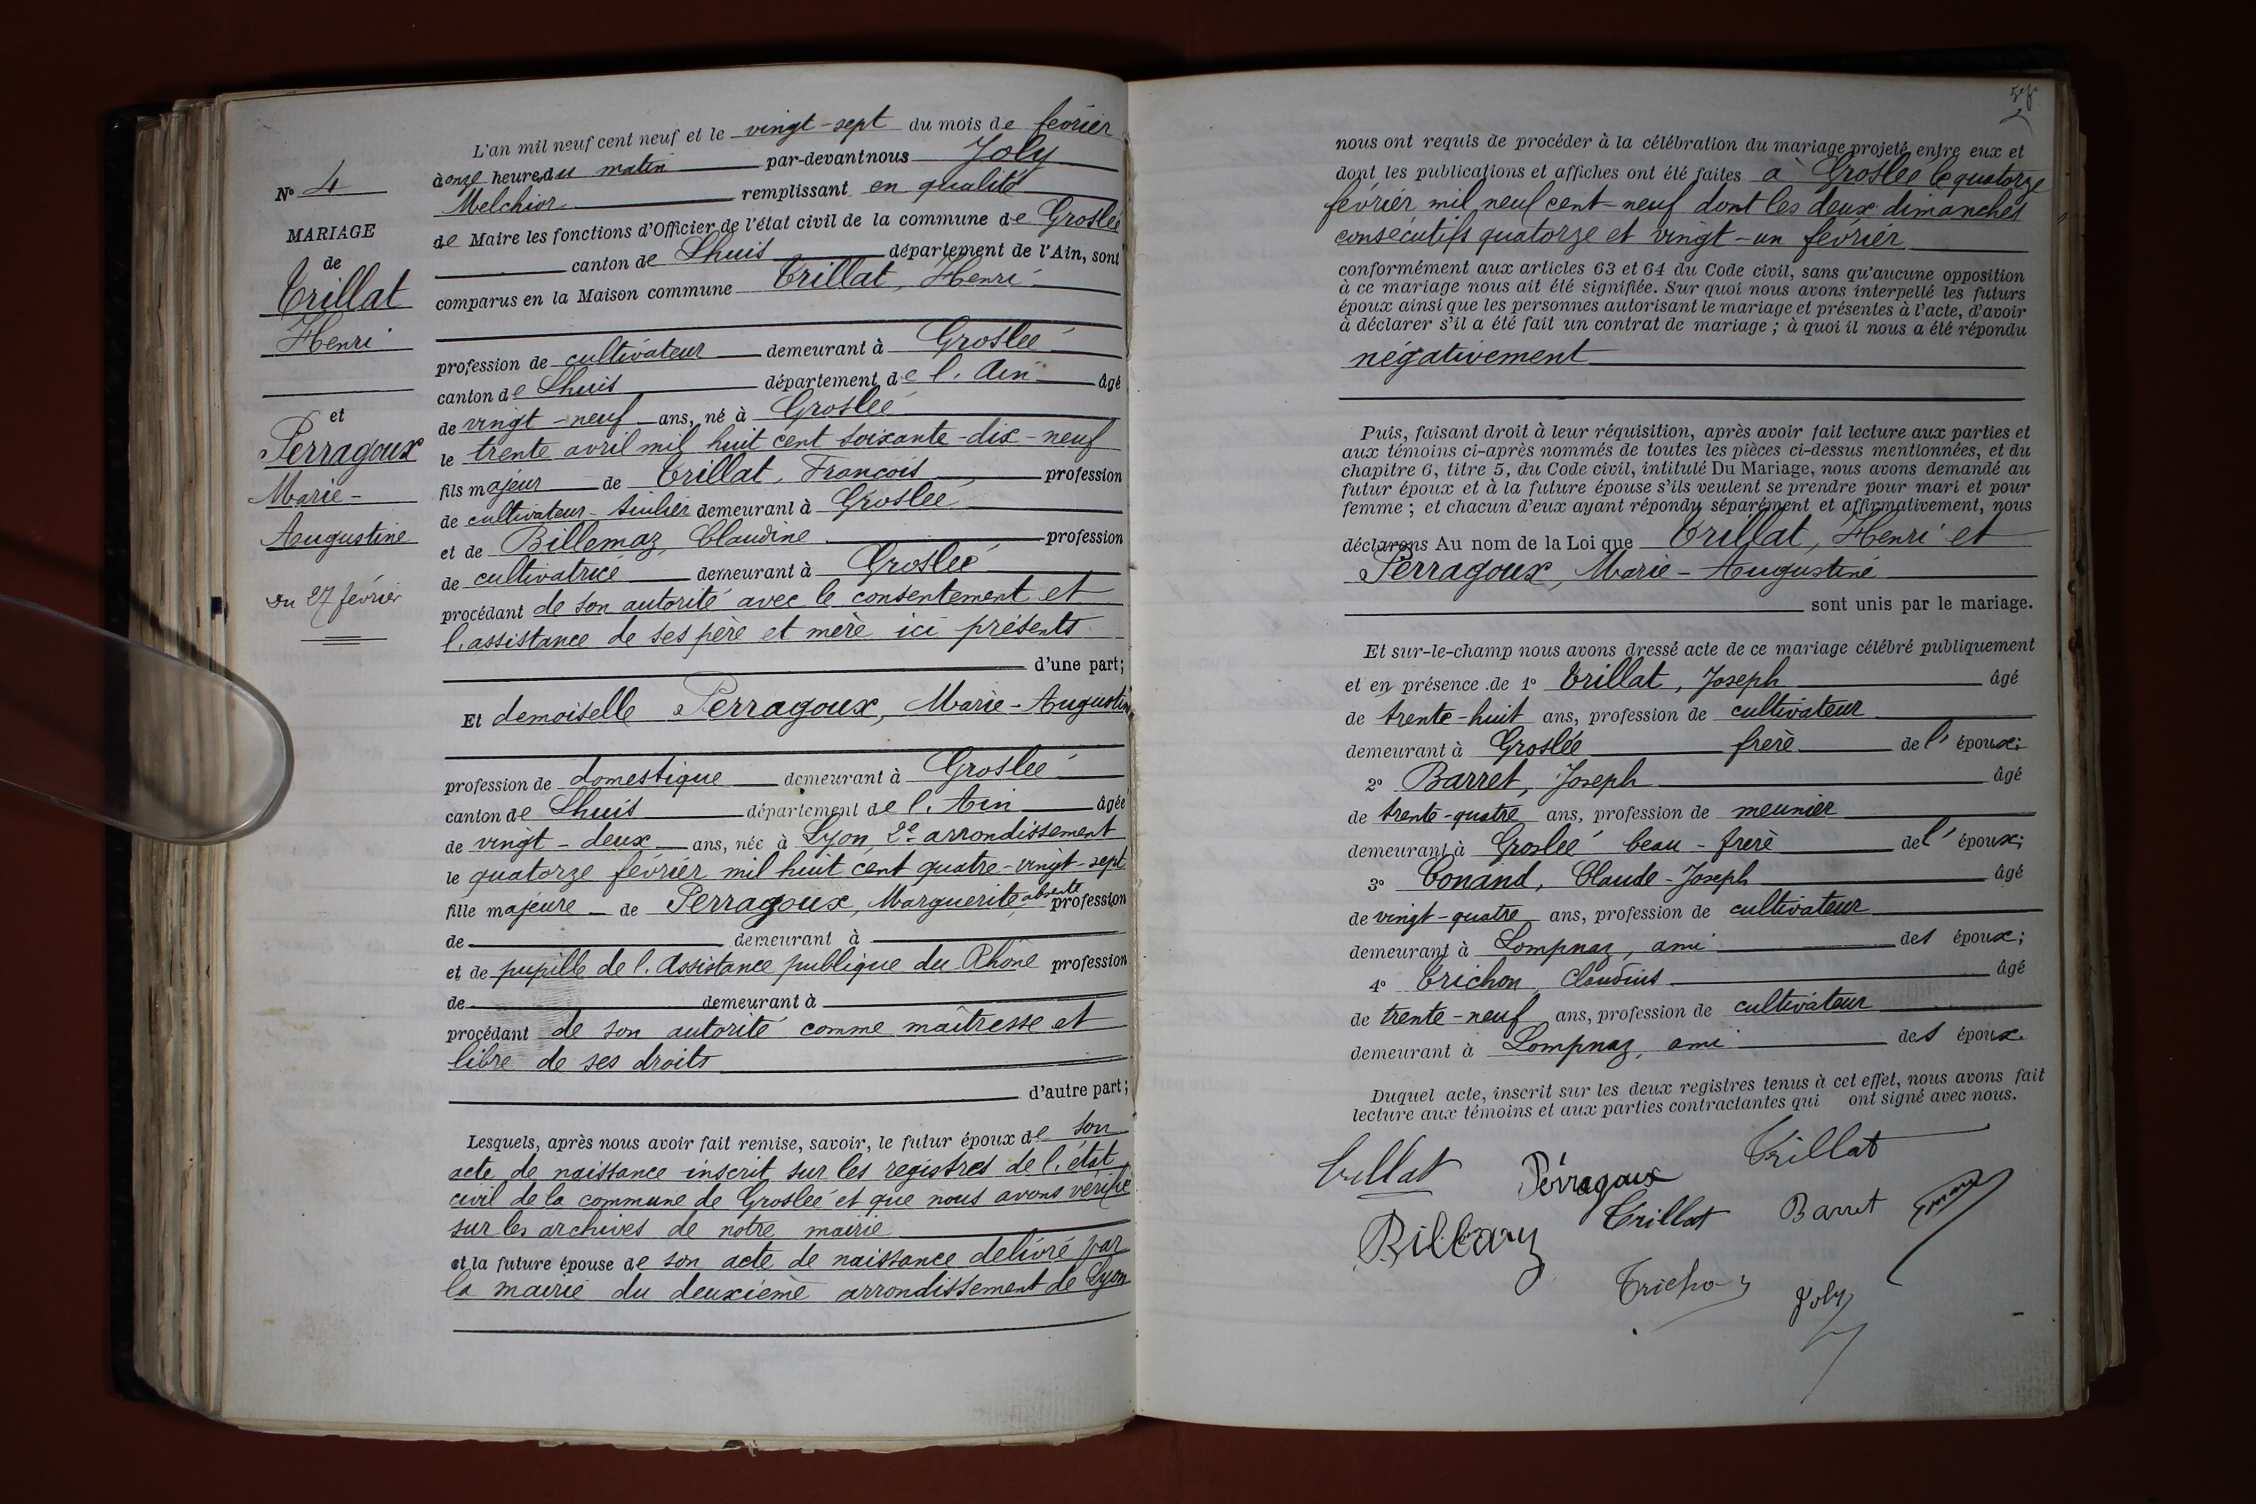 N° 4
MARIAGE
de
Trillat
Henri
et
Perragoux
Marie-
Augustine
Du 27 février
L'an mil neuf cent neuf et le vingt-sept du mois de février
à onze heures du matin par-devant nous Joly
Melchior remplissant en qualité
de Maire les fonctions d'Officier de l'état civil de la commune de Groslée
canton de Lhuis département de l'Ain, sont
comparus en la Maison commune Trillat, Henri
profession de cultivateur demeurant à Groslée
canton de Lhuis département de l'Ain âgé
de vingt-neuf ans, né à Groslée
le trente avril mil huit cent soixante-dix-neuf
fils majeur de Trillat, François profession
de cultivateur-tuilier demeurant à Groslée
et de Billemaz, Claudine profession
de cultivatrice demeurant à Groslée
procédant de son autorité avec le consentement et
l'assistance de ses père et mère ici présents
d'une part;
Et demoiselle Perragoux, Marie-Augustine
profession de domestique demeurant à Groslée
canton de Lhuis département de l'Ain âgée
de vingt-deux ans, née à Lyon, 2e arrondissement
le quatorze février mil huit cent quatre-vingt-sept
fille majeure de Perragoux, Marguerite absente profession
de demeurant à
et de pupille de l'Assistance publique du Rhône profession
de demeurant à
procédant de son autorité comme maîtresse et
libre de ses droits
d'autre part;
Lesquels, après nous avoir fait remise, savoir, le futur époux de son
acte de naissance inscrit sur les registres de l'état
civil de la commune de Groslée et que nous avons vérifié
sur les archives de notre mairie
et la future épouse de son acte de naissance délivré par
la mairie du deuxième arrondissement de Lyon
nous ont requis de procéder à la célébration du mariage projeté entre eux et
dont les publications et affiches ont été faites à Groslée le quatorze
février mil neuf cent-neuf dont les deux dimanches
consécutifs quatorze et vingt-un février
conformément aux articles 63 et 64 du Code civil, sans qu'aucune opposition
à ce mariage nous ait été signifiée. Sur quoi nous avons interpellé les futurs
époux ainsi que les personnes autorisant le mariage et présentes à l'acte, d'avoir
à déclarer s'il a été fait un contrat de mariage; à quoi il nous a été répondu
négativement
Puis, faisant droit à leur réquisition, après avoir fait lecture aux parties et
aux témoins ci-après nommés de toutes les pièces ci-dessus mentionnées, et du
chapitre 6, titre 5, du Code civil, intitulé Du Mariage, nous avons demandé au
futur époux et à la future épouse s'ils veulent se prendre pour mari et pour
femme; et chacun d'eux ayant répondu séparément et affirmativement, nous
déclarons Au nom de la Loi que Trillat, Henri et
Perragoux, Marie-Augustine
sont unis par le mariage.
Et sur-le-champ nous avons dressé acte de ce mariage célébré publiquement
et en présence de 1° Trillat, Joseph âgé
de trente-huit ans, profession de cultivateur
demeurant à Groslée frère de l'époux;
2° Barret, Joseph âgé
de trente-quatre ans, profession de meunier
demeurant à Groslée beau-frère de l'époux;
3° Conand, Claude-Joseph âgé
de vingt-quatre ans, profession de cultivateur
demeurant à Lompnaz, ami des époux;
4° Trichon Claudius âgé
de trente-neuf ans, profession de cultivateur
demeurant à Lompnaz, ami des époux.
Duquel acte, inscrit sur les deux registres tenus à cet effet, nous avons fait
lecture aux témoins et aux parties contractantes qui ont signé avec nous.
Trillat Pérragoux Trillat
Trillat Barret
Trichon Joly